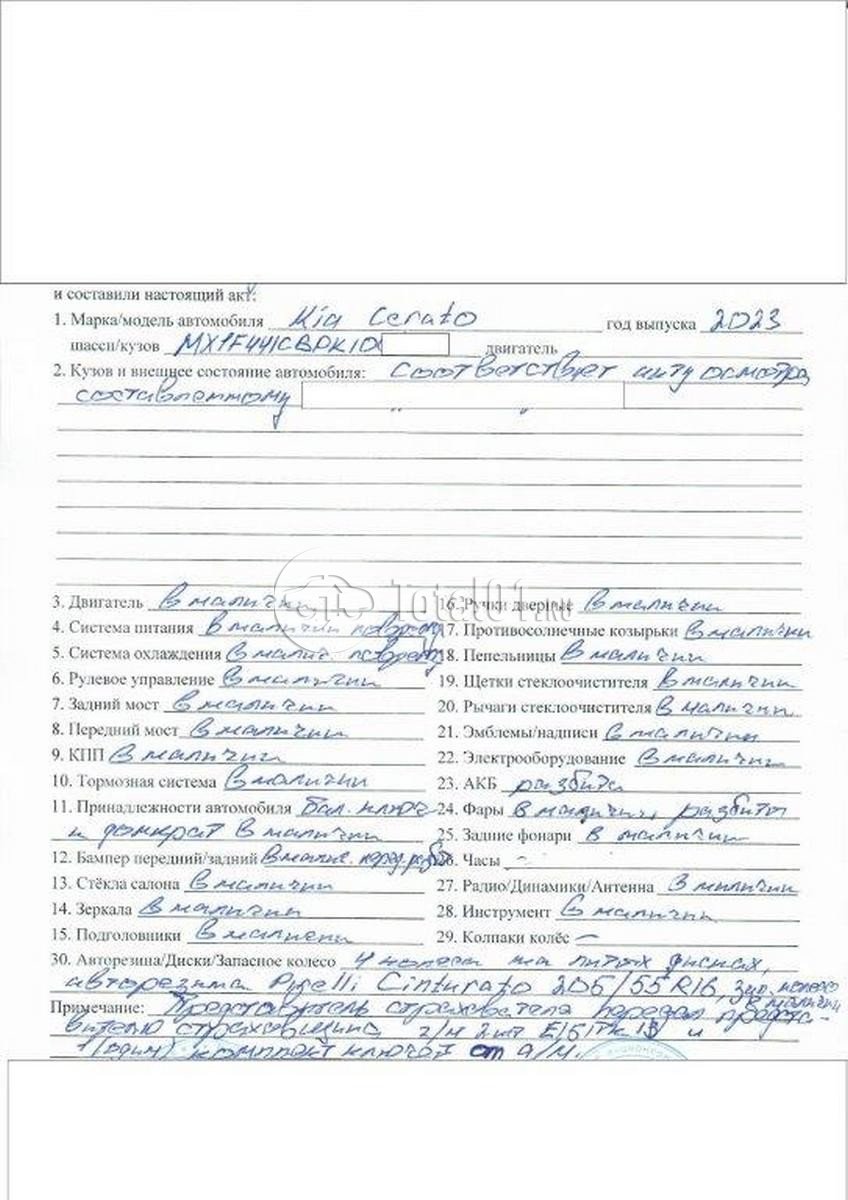 и составили настоящий акт:
1. Марка/модель автомобиля Kia Cerato год выпуска 2023
шасси/кузов MX1F441CBPK10 двигатель
2. Кузов и внешнее состояние автомобиля: Соответствует акту осмотра,
составленному
3. Двигатель в наличии 16. Ручки дверные в наличии
4. Система питания в наличии поврежд 17. Противосолнечные козырьки в наличии
5. Система охлаждения в налич. поврежд 18. Пепельницы в наличии
6. Рулевое управление в наличии 19. Щетки стеклоочистителя в наличии
7. Задний мост в наличии 20. Рычаги стеклоочистителя в наличии
8. Передний мост в наличии 21. Эмблемы/надписи в наличии
9. КПП в наличии 22. Электрооборудование в наличии
10. Тормозная система в наличии 23. АКБ разбита
11. Принадлежности автомобиля бал. ключ 24. Фары в наличии, разбиты
и домкрат в наличии 25. Задние фонари в наличии
12. Бампер передний/задний в налич. перед. разб 26. Часы -
13. Стёкла салона в наличии 27. Радио/Динамики/Антенна в наличии
14. Зеркала в наличии 28. Инструмент в наличии
15. Подголовники в наличии 29. Колпаки колёс -
30. Авторезина/Диски/Запасное колесо 4 колеса на литых дисках,
авторезина Pirelli Cinturato 205/55 R16, зап. колесо
в наличии
Примечание: Представитель страхователя передал предста-
вителю страховщика г/н 2 шт и
1 (один) комплект ключей от а/м.
Total01.RU